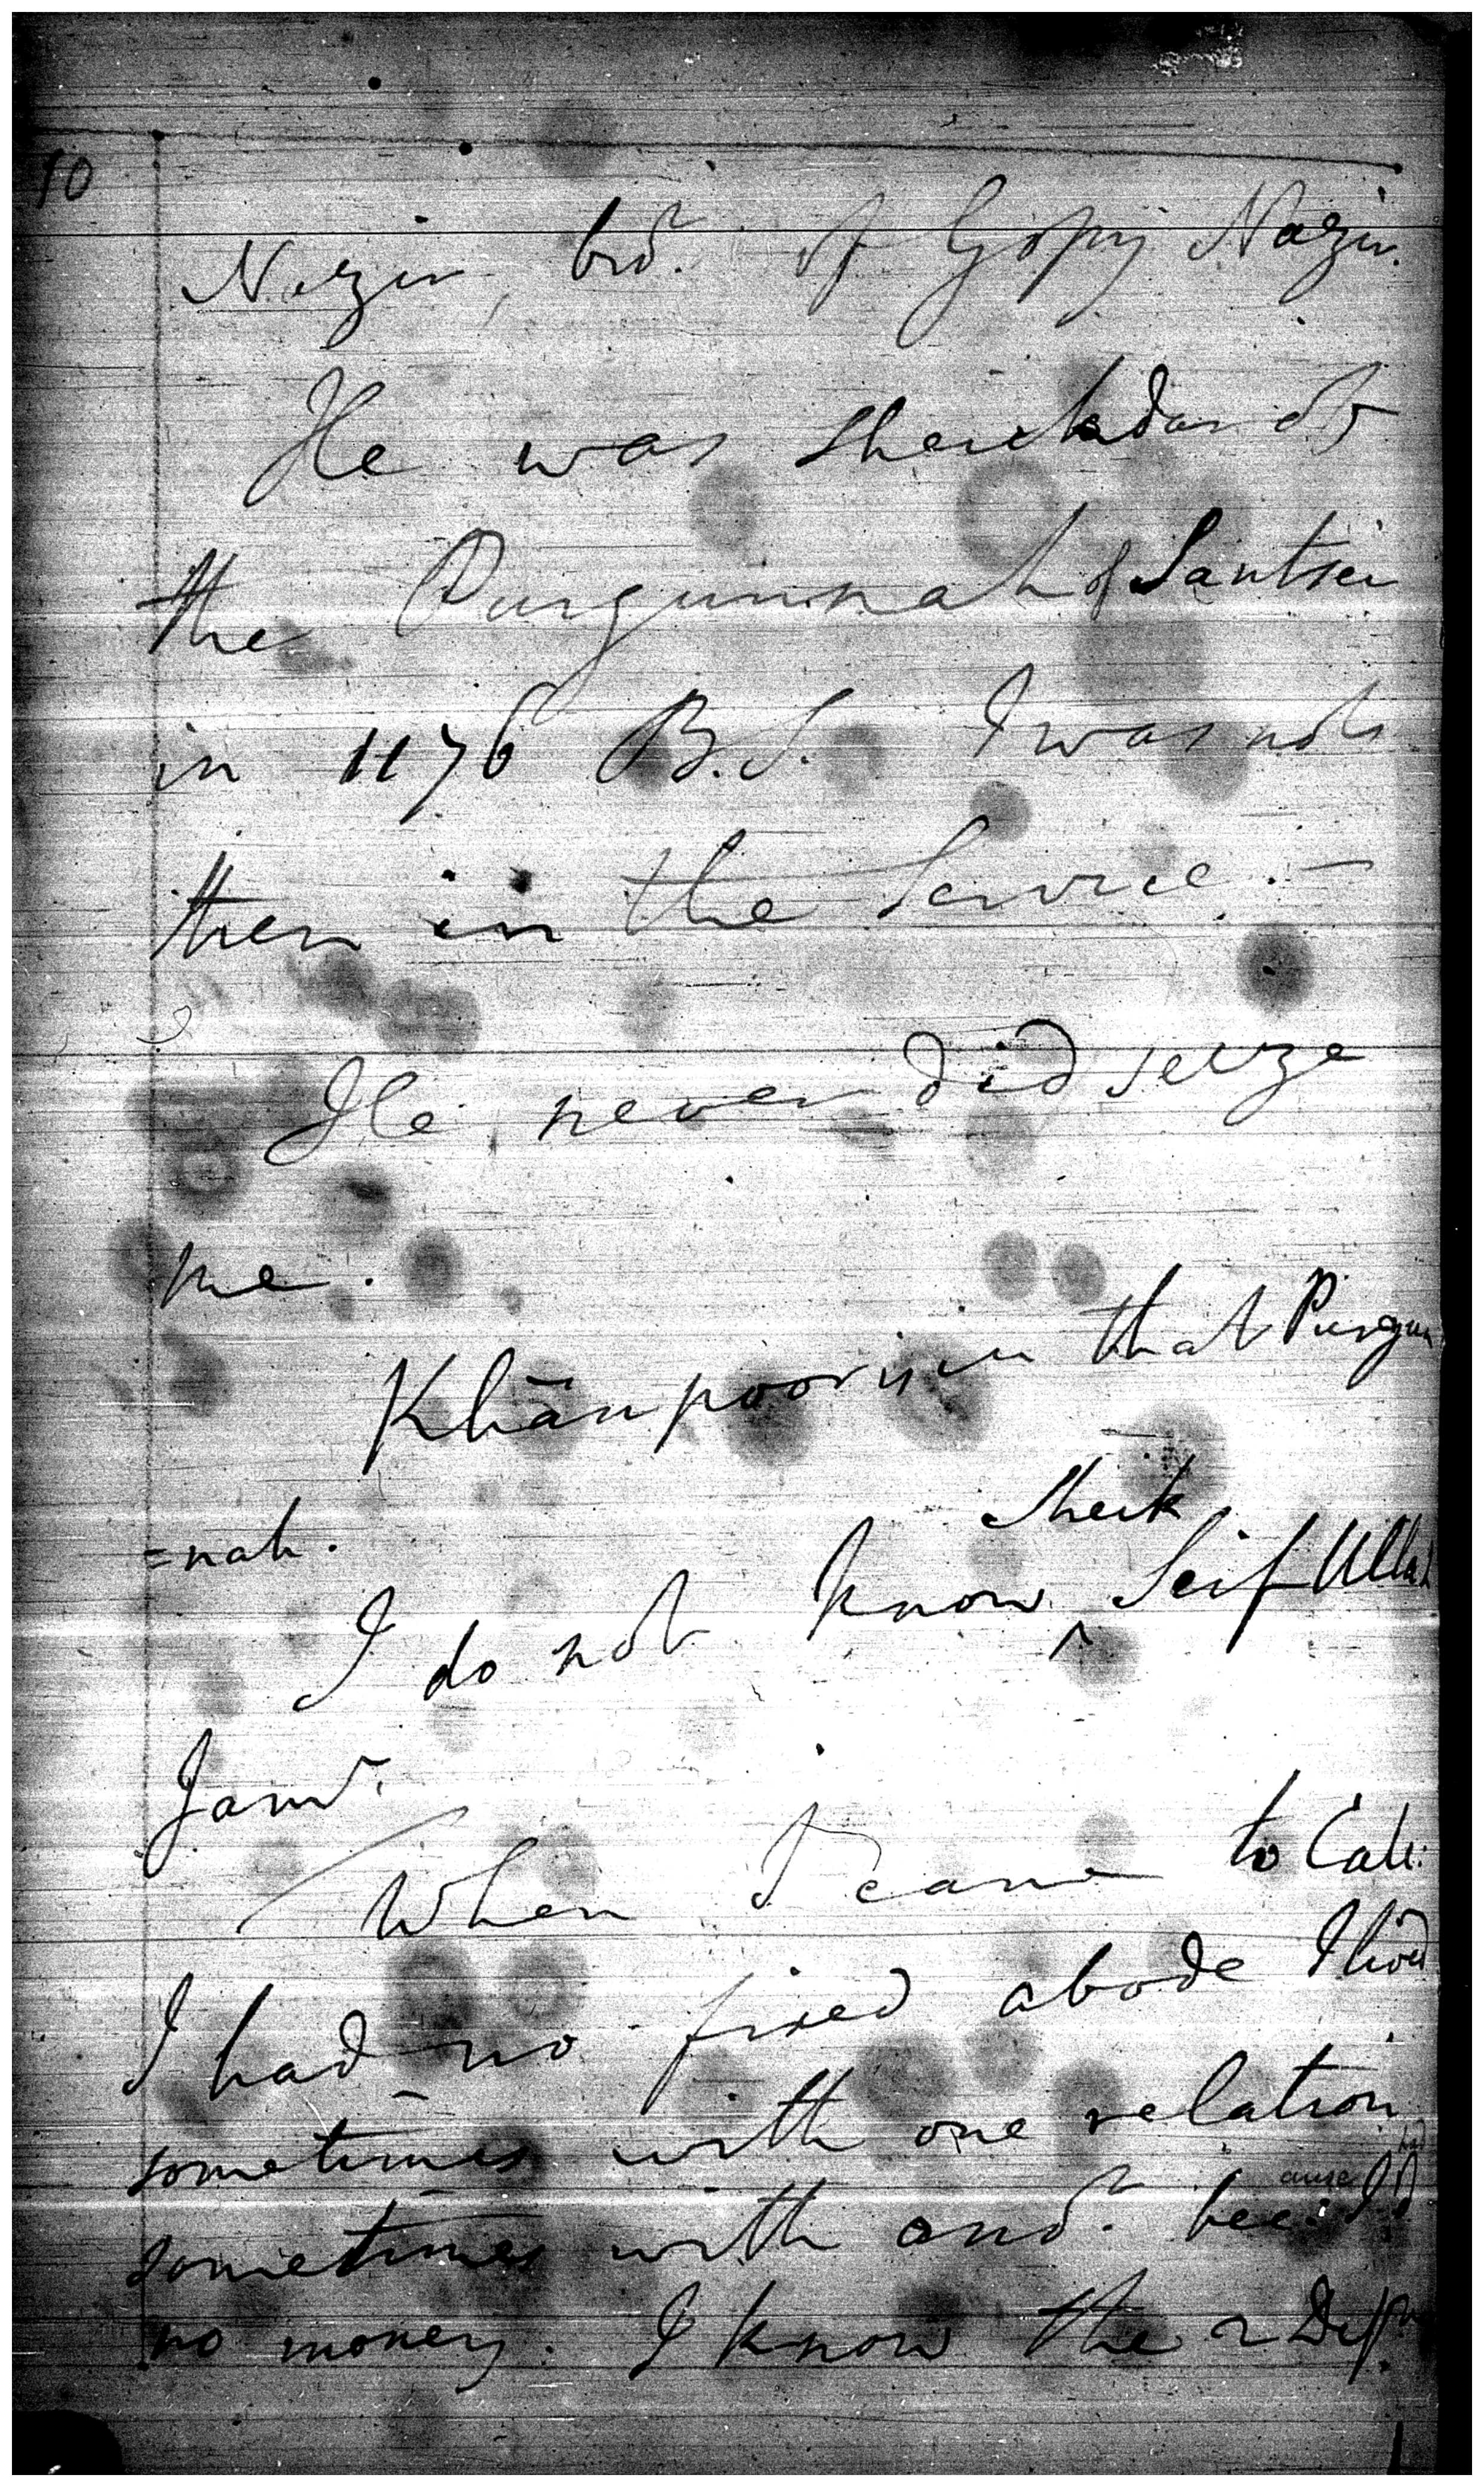 10
Nazir, bror. of Gopy Nazir.
He was Sheikdar of
the Purgunnah of Santser
in 1176 B.S. I was not
then in the Service. —
He never did seize
me.
Khānpoor is in that Purgun
=nah.
Sheik
I do not know ^ Seif Ullah
Jamr.
When I came to Calc:
I had no fixed abode I lived
sometimes with one relation
sometimes with anor. because I had
no money. I know the 2